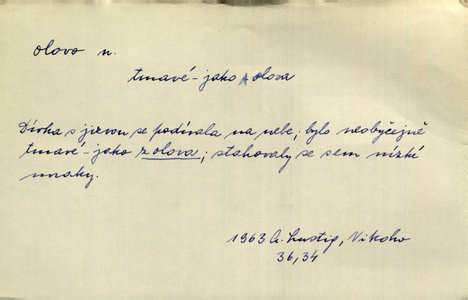 olovo n.
tmavé - jako z olova
Dívka s jizvou se podívala na nebe; bylo neobyčejně
tmavé - jako z olova; stahovaly se sem nízké
mraky.
1963 A. Lustig, Nikoho
36,34